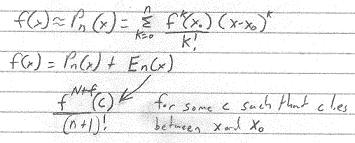 f(x) ≈ Pn(x) = n Σ k=0 f^k(x₀)(x-x₀)^k / k!
f(x) = Pn(x) + En(x)
f^{N+1}(c) / (n+1)! for some c such that c lies
between x and x₀